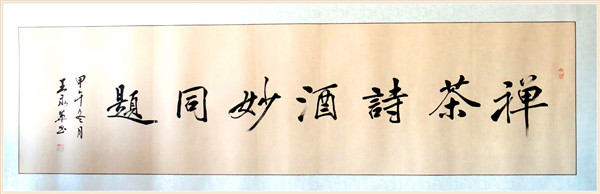 禅茶詩酒妙同題
甲午冬月
王永